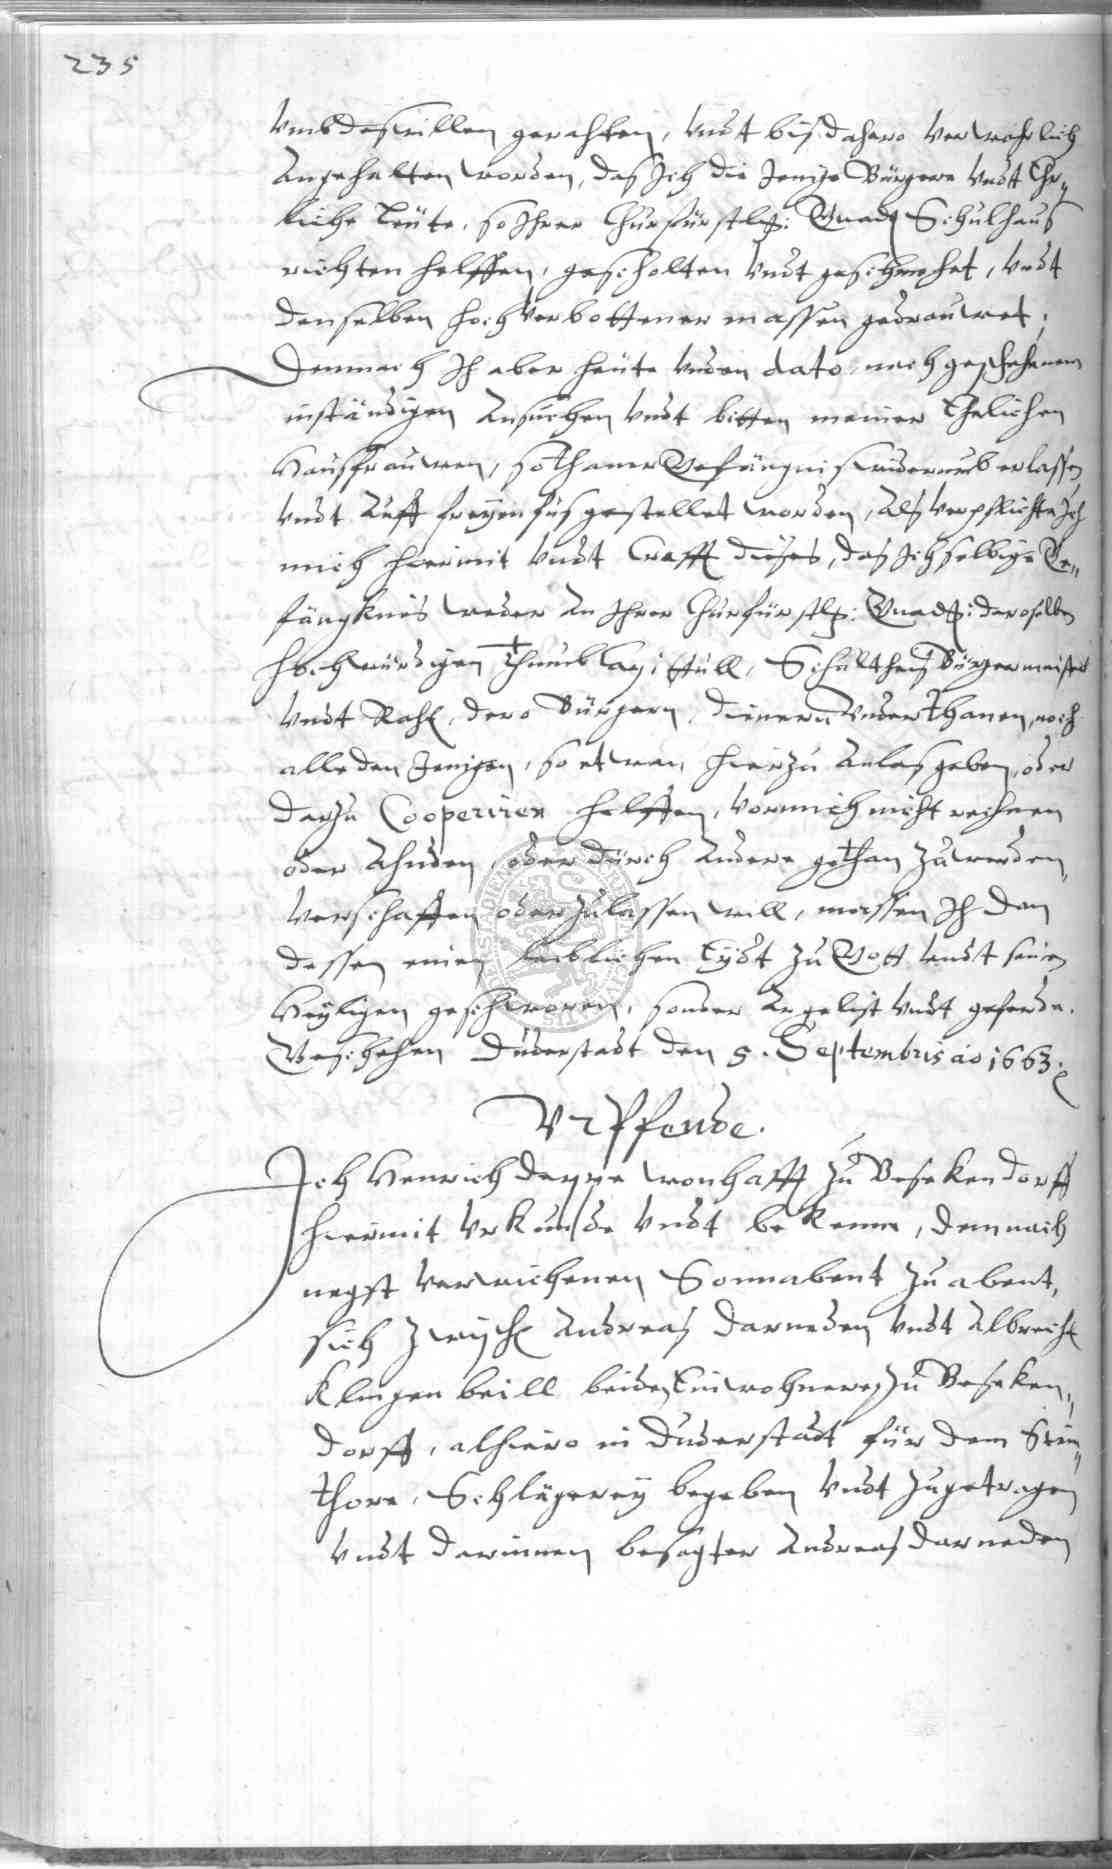 235
Vmb deswillen gerahten, Vndt bis dahero Verwahrlich
Angehalten worden, das Ich die Jenige Bürgere Vndt Ehr„
liche Leüte, so Ihrer Churfürstlg: Gnadg Schulhaus
richten helffen, gescholten Vndt geschmehet, Vndt
denselben hochverbottener massen gedrauwet;
Demnach Ich aber heüte Vnden dato, nach geschehenem
inständigen Ansuchen Vndt bitten meiner Ehelichen
Hausfrauwen, sothaner Gefängnis widerumb erlassen
Vndt Auff freyen fus gestellet worden, Als Verpflichte Ich
mich hiermit Vndt Crafft dieses, das Ich selbige Ge„
fängknis weder An Ihrer Churfürstlg: Gnadg: deroselben
Hochwürdigen Thumb Capittull, Schultheis Bürgermeister
Vndt Raht, dero Bürgern, dienern Vnderthanen, noch
alle den Jenigen, so etwan hierzu Anlas geben, oder
darzu Cooperiren helffen, Vor mich nicht rechnen
oder Ahnden, oder durch Andere gethan zuwerden,
Verschaffen oder zulassen will, massen Ich dan
dessen einen leiblichen Eydt zu Gott Vndt seinen
Heyligen geschworen, sonder Argelist Vndt geferde.
Geschehen Duderstadt den 5. Septembris ao 1663.
VrPfende.
Ich Henrich Deppe wonhafft zu Besekendorff
hiermit Vrkunde Vndt bekenne, demnach
negst Verwichenen Sonnabent zu abent,
sich zwischen Andreas Darneden Vndt Albrecht
Klingenbeill beide Einwohnere zu Beseken„
dorff, alhiero in Duderstadt für dem Stein„
thore, Schlägerey begeben Vndt zugetragen
Vndt darinnen besagter Andreas Darneden